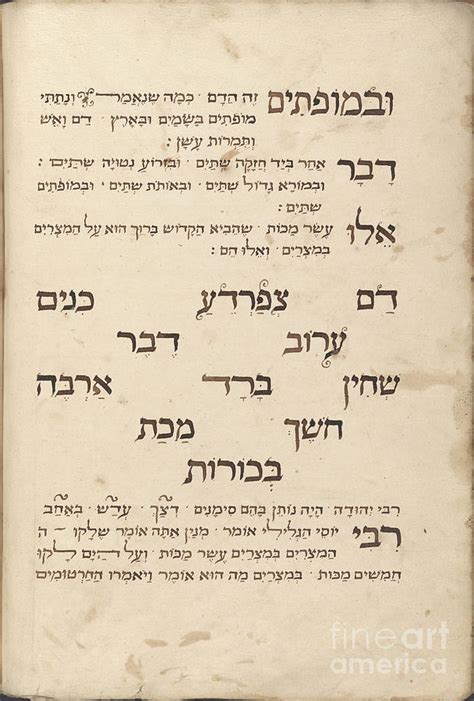 ובמופתים זֶה הַדָּם · כְּמָה שֶׁנֶּאֱמַר וְנָתַתִּי
מוֹפְתִים בַּשָּׁמַיִם וּבָאָרֶץ · דָּם וָאֵשׁ
וְתִמְרוֹת עָשָׁן:
דָּבָר אַחֵר בְּיָד חֲזָקָה שְׁתַּיִם · וּבִזְרוֹעַ נְטוּיָה שְׁתַּיִם:
וּבְמוֹרָא גָּדוֹל שְׁתַּיִם · וּבְאוֹתוֹת שְׁתַּיִם · וּבְמוֹפְתִים
שְׁתַּיִם:
אֵלוּ עֶשֶׂר מַכּוֹת שֶׁהֵבִיא הַקָּדוֹשׁ בָּרוּךְ הוּא עַל הַמִּצְרִים
בְּמִצְרַיִם · וְאֵלוּ הֵם:
דַּם צְפַרְדֵּעַ כִּנִּים
עָרוֹב דֶּבֶר
שְׁחִין בָּרָד אַרְבֶּה
חֹשֶׁךְ מַכַּת
בְּכוֹרוֹת
רַבִּי יְהוּדָה · הָיָה נוֹתֵן בָּהֶם סִימָנִים · דְּצַךְ · עֲדַשׁ · בְּאַחַב
רִבִּי יוֹסֵי הַגְּלִילִי אוֹמֵר · מִנַּיִן אַתָּה אוֹמֵר שֶׁלָּקוּ ה
הַמִּצְרִים בְּמִצְרַיִם עֶשֶׂר מַכּוֹת · וְעַל הַיָּם לָקוּ
חֲמִשִּׁים מַכּוֹת · בְּמִצְרַיִם מַה הוּא אוֹמֵר וַיֹּאמְרוּ הַחַרְטוּמִים
fineart
america